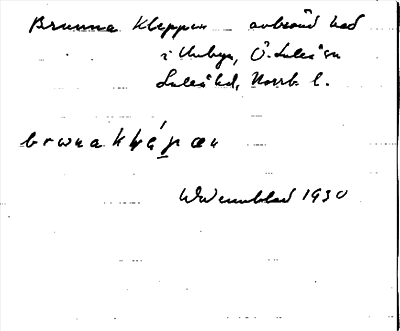 Brunna Kleppen avbränd hed
i Unbyn, Ö. Luleå sn
Luleå hd, Norrb l.
Wennblad 1930